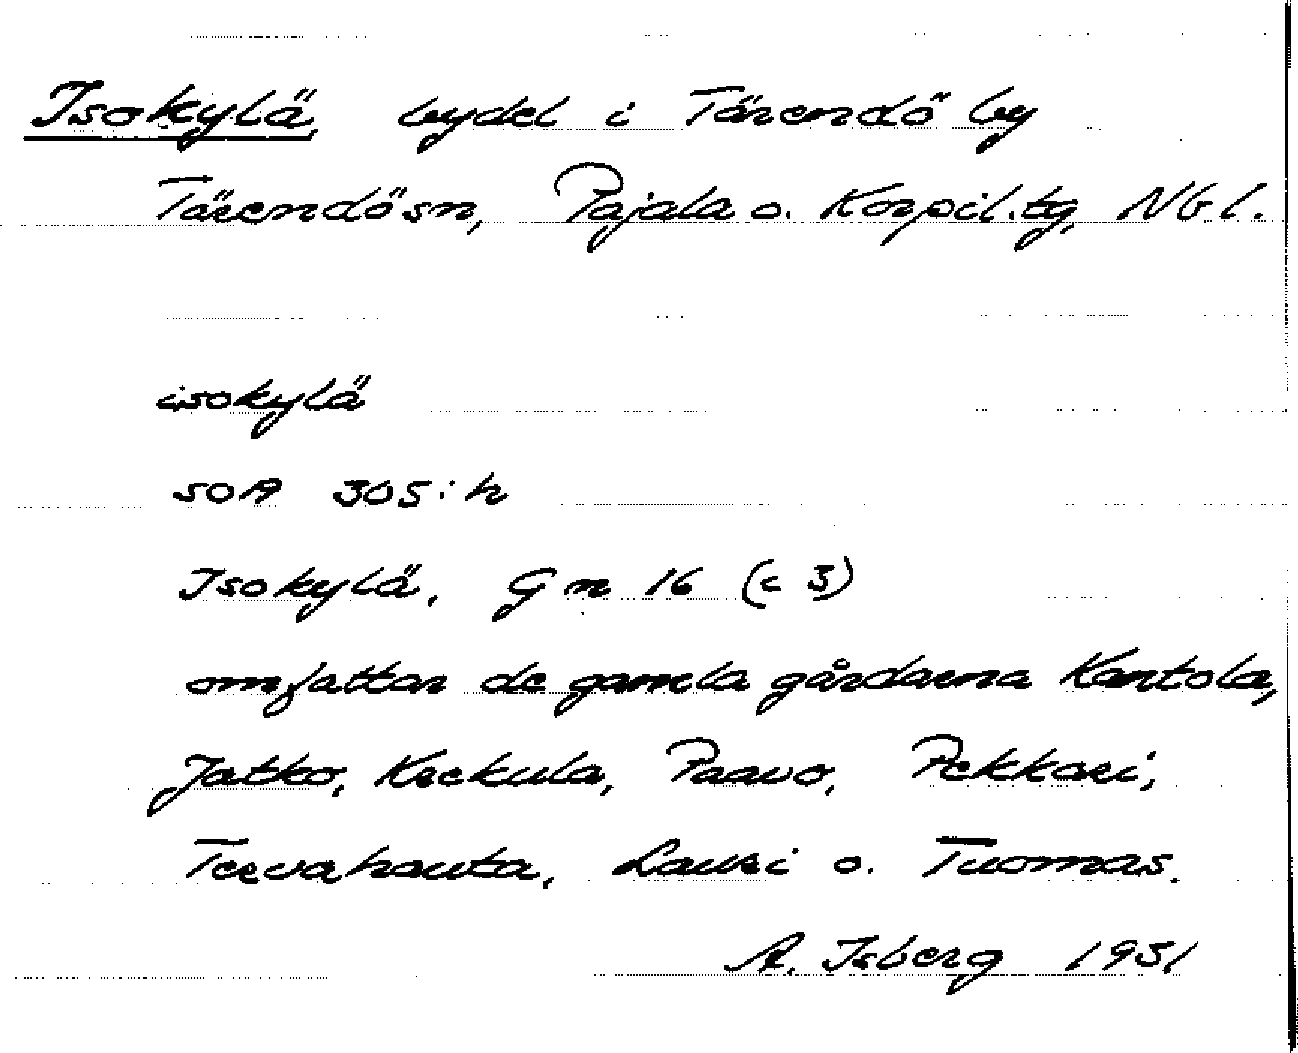 Isokylä, bydel i Tärendö by
Tärendö sn, Pajala o. Korpil. tg, Nb l.
isokylä
SOA 305:h
Isokylä, Gn 16 (c 3)
omfattar de gamla gårdarna Kantola,
Jatko, Krekula, Paavo, Pekkari,
Tervahauta, Lauri o. Tuomas.
A. Isberg 1931